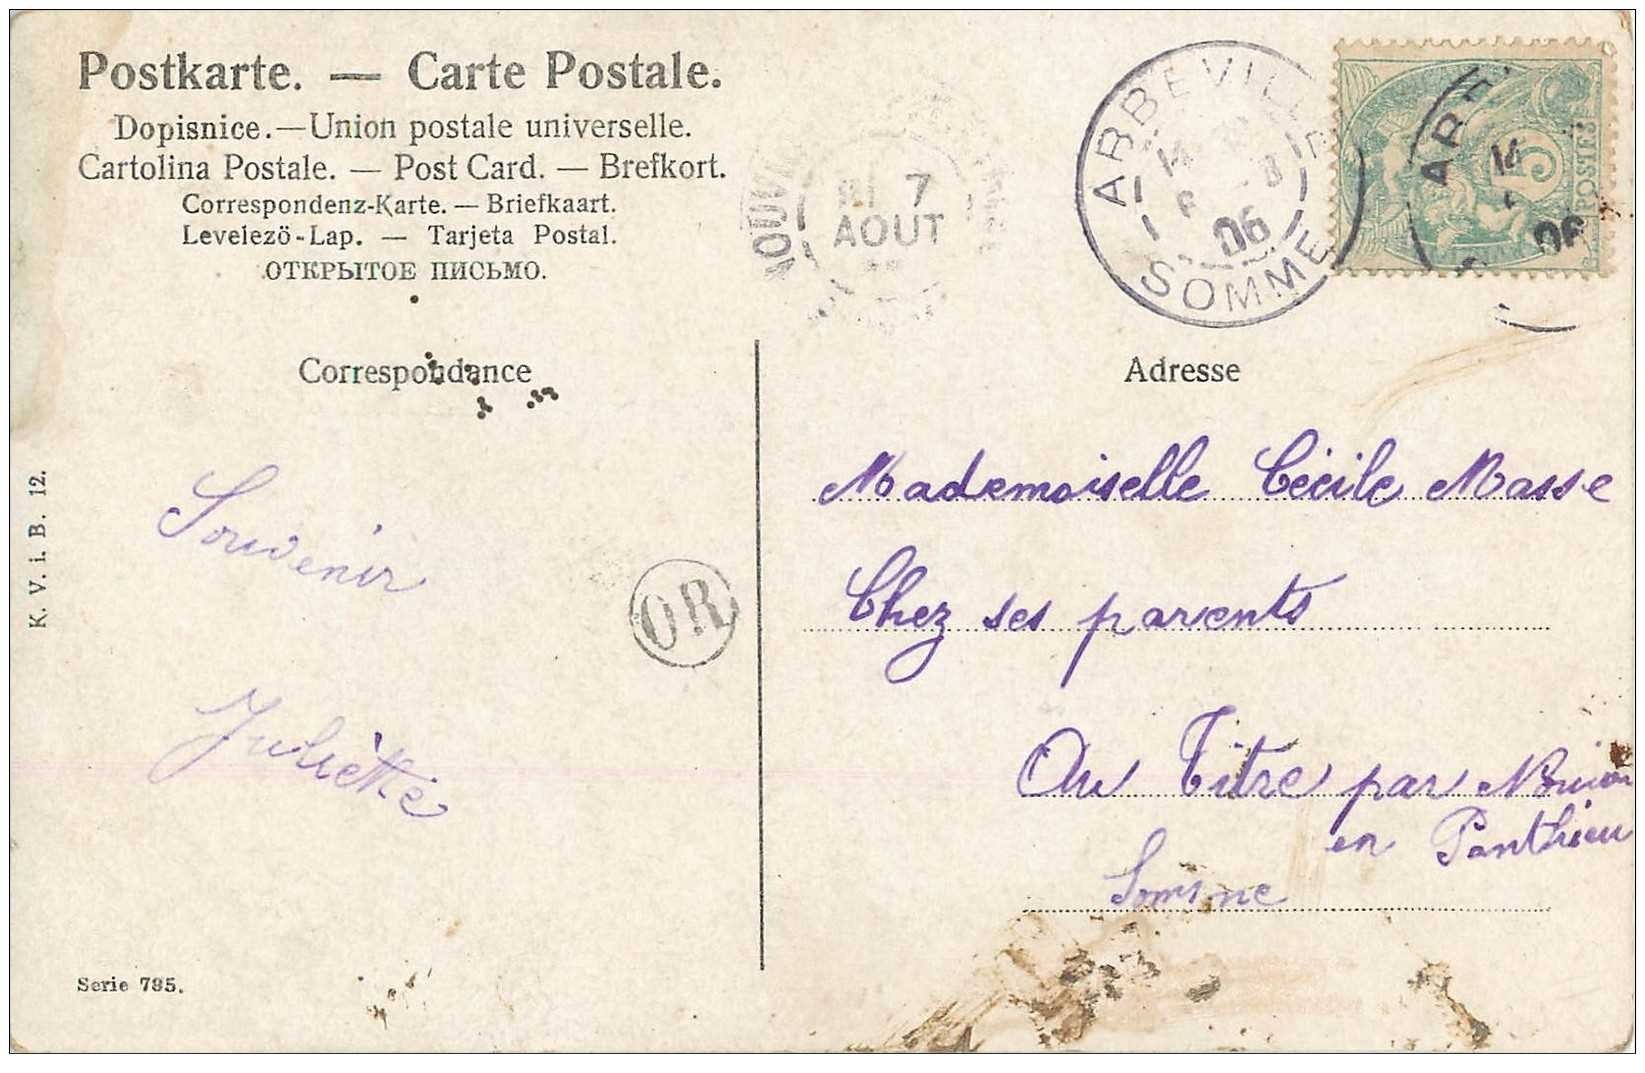 Postkarte. — Carte Postale.
Dopisnice.—Union postale universelle.
Cartolina Postale. — Post Card. — Brefkort.
Correspondenz-Karte. — Briefkaart.
Levelezö-Lap. — Tarjeta Postal.
ОТКРЫТОЕ ПИСЬМО.
7
AOUT
ABBEVILLE
14
06
SOMME
14
06
5
POSTES
Correspondance
Adresse
K. V. i. B. 12.
Souvenir
Juliette
OR
Mademoiselle Cécile Masse
Chez ses parents
Au Titre par Nouvion
en Ponthieu
Somme
Serie 785.